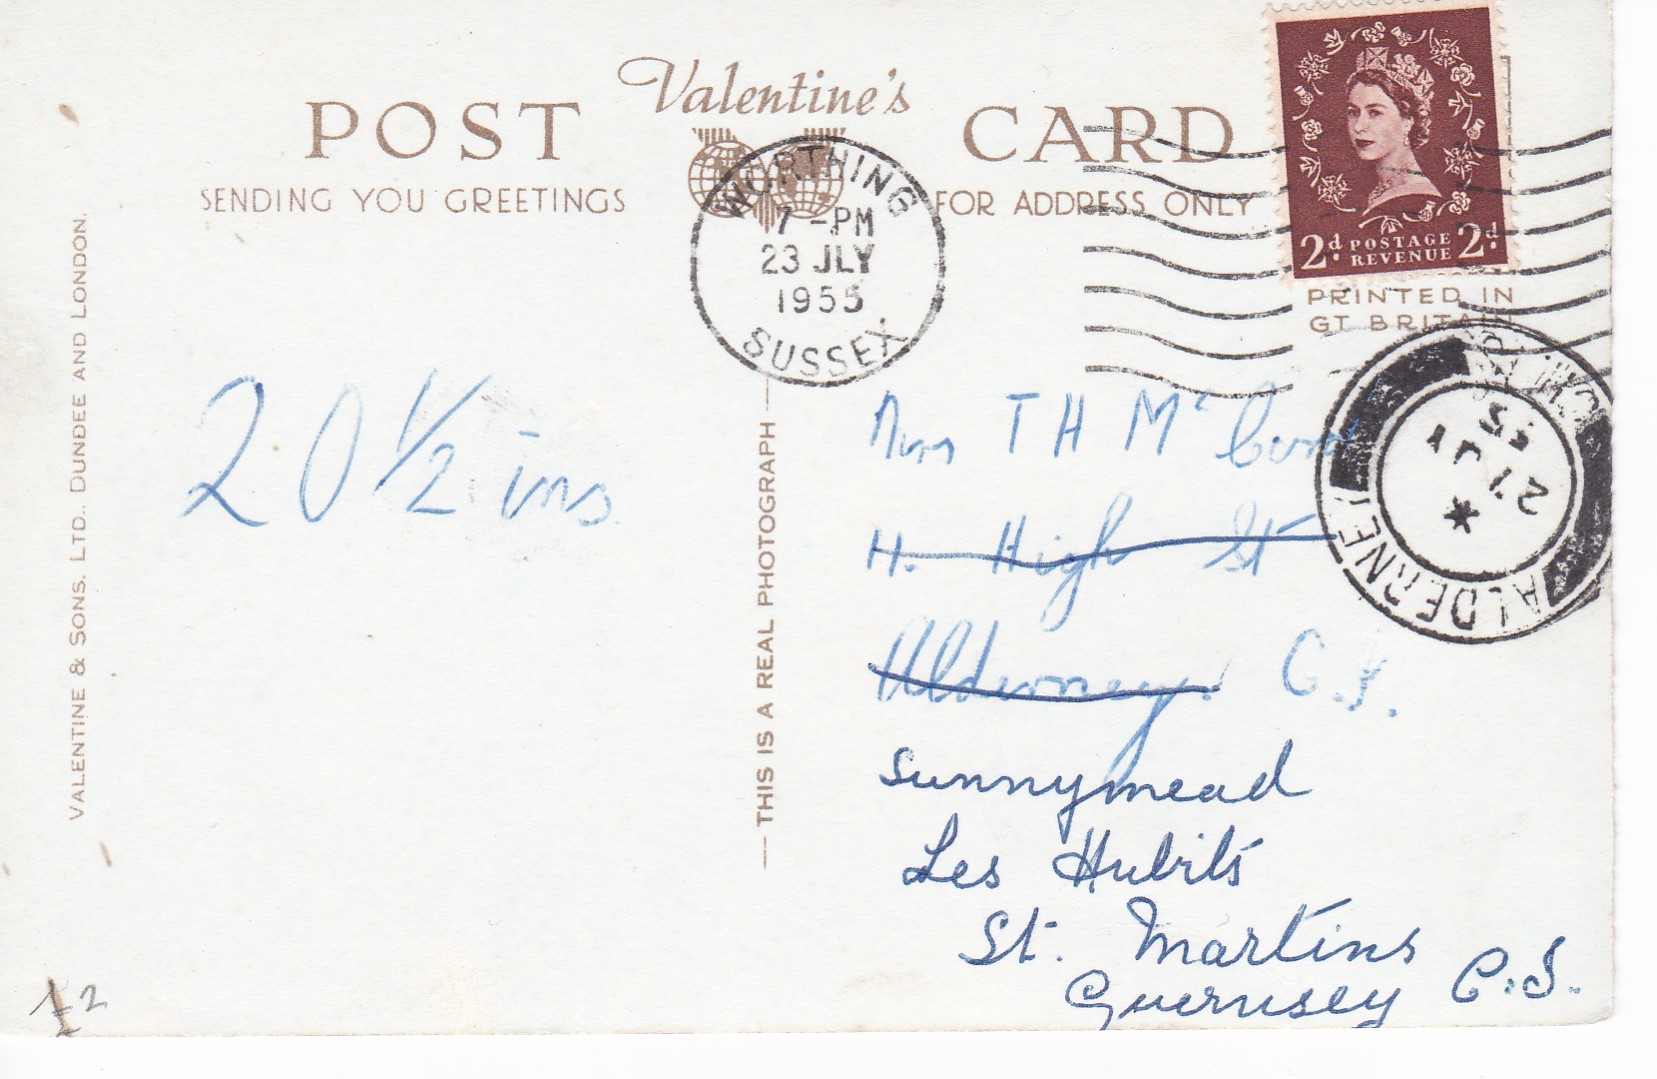 Valentine's
POST CARD
SENDING YOU GREETINGS
FOR ADDRESS ONLY
WORTHING
7 - PM
23 JLY
1955
SUSSEX
2d. POSTAGE REVENUE 2d.
PRINTED IN
GT BRITAIN
ALDERNEY
27 JY
55
20 1/2 ins
T H Mc
H. High St
Alderney. C.I.
Sunnymead
Les Hubits
St. Martins
Guernsey C.I.
THIS IS A REAL PHOTOGRAPH
VALENTINE & SONS. LTD. DUNDEE AND LONDON.
£2